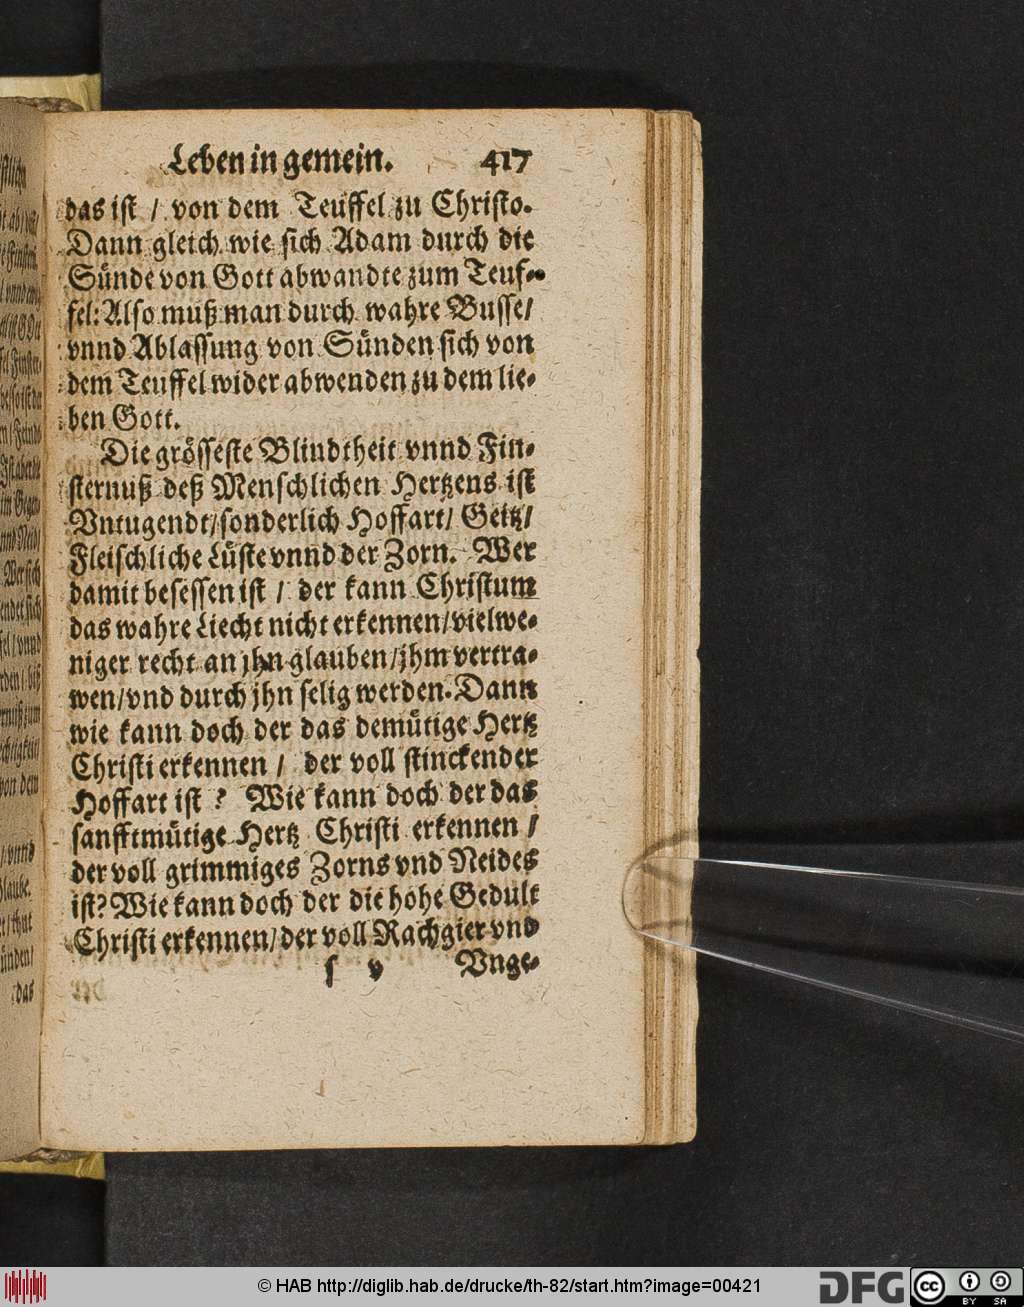 Leben in gemein. 417
das ist / von dem Teuffel zu Christo.
Dann gleich wie sich Adam durch die
Sünde von Gott abwandte zum Teuf-
fel: Also muß man durch wahre Busse/
vnnd Ablassung von Sünden sich von
dem Teuffel wider abwenden zu dem lie-
ben Gott.
Die grösseste Blindtheit vnnd Fin-
sternuß deß Menschlichen Hertzens ist
Vntugendt/ sonderlich Hoffart/ Geitz/
Fleischliche Lüste vnnd der Zorn. Wer
damit besessen ist / der kann Christum
das wahre Liecht nicht erkennen/ vielwe-
niger recht an jhn glauben/ jhm vertra-
wen/ vnd durch jhn selig werden. Dann
wie kann doch der das demütige Hertz
Christi erkennen / der voll stinckender
Hoffart ist ? Wie kann doch der das
sanfftmütige Hertz Christi erkennen /
der voll grimmiges Zorns vnd Neides
ist? Wie kann doch der die hohe Gedult
Christi erkennen/ der voll Rachgier vnd
s v Vnge-
das
© HAB http://diglib.hab.de/drucke/th-82/start.htm?image=00421
DFG
cc BY SA